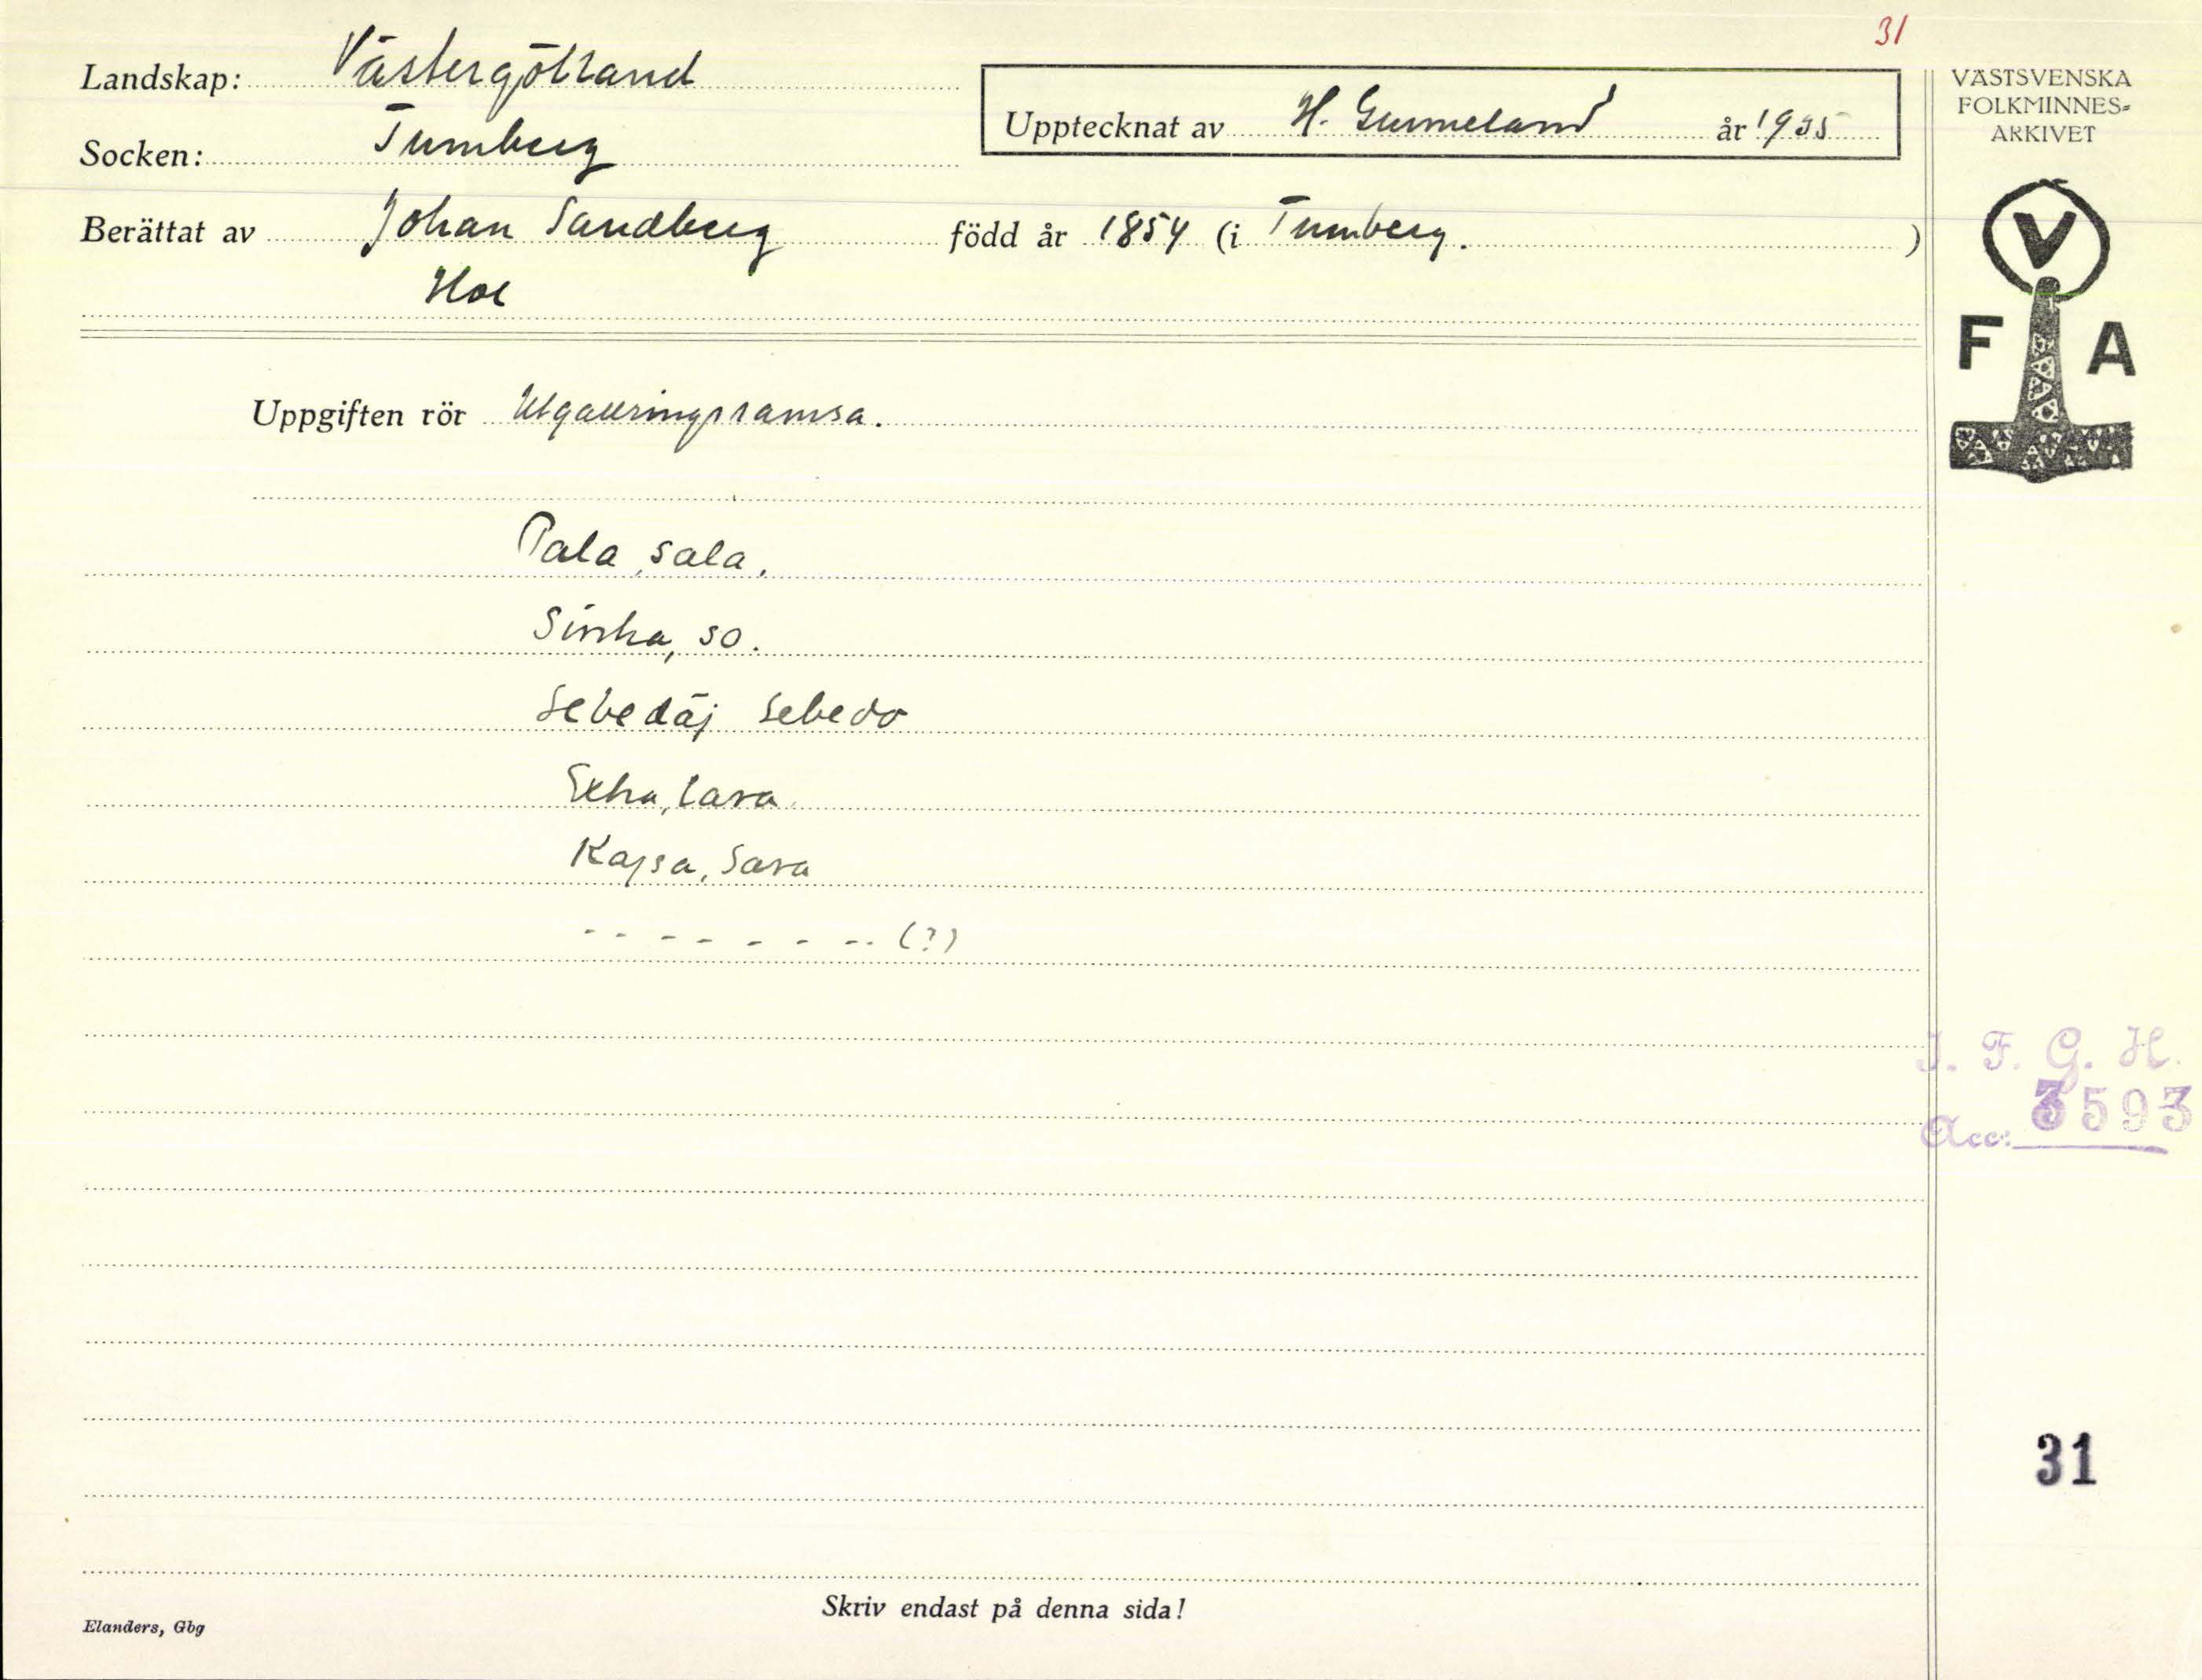 31
Landskap: Västergötland
Socken: Tumberg
Upptecknat av H. Gumeland år 1935
Berättat av Johan Sandberg född år 1854 (i Tumberg. )
Hol
Uppgiften rör Utgallringsramsa.
Pala, sala.
Sinka, so.
Sebedäj Sebedo
Extra, lara
Kajsa, Sara
- - - - - - - - (?)
Skriv endast på denna sida!
Elanders, Gbg
VÄSTSVENSKA
FOLKMINNES=
ARKIVET
V
F A
I. F. G. H.
Acc: 3593
31